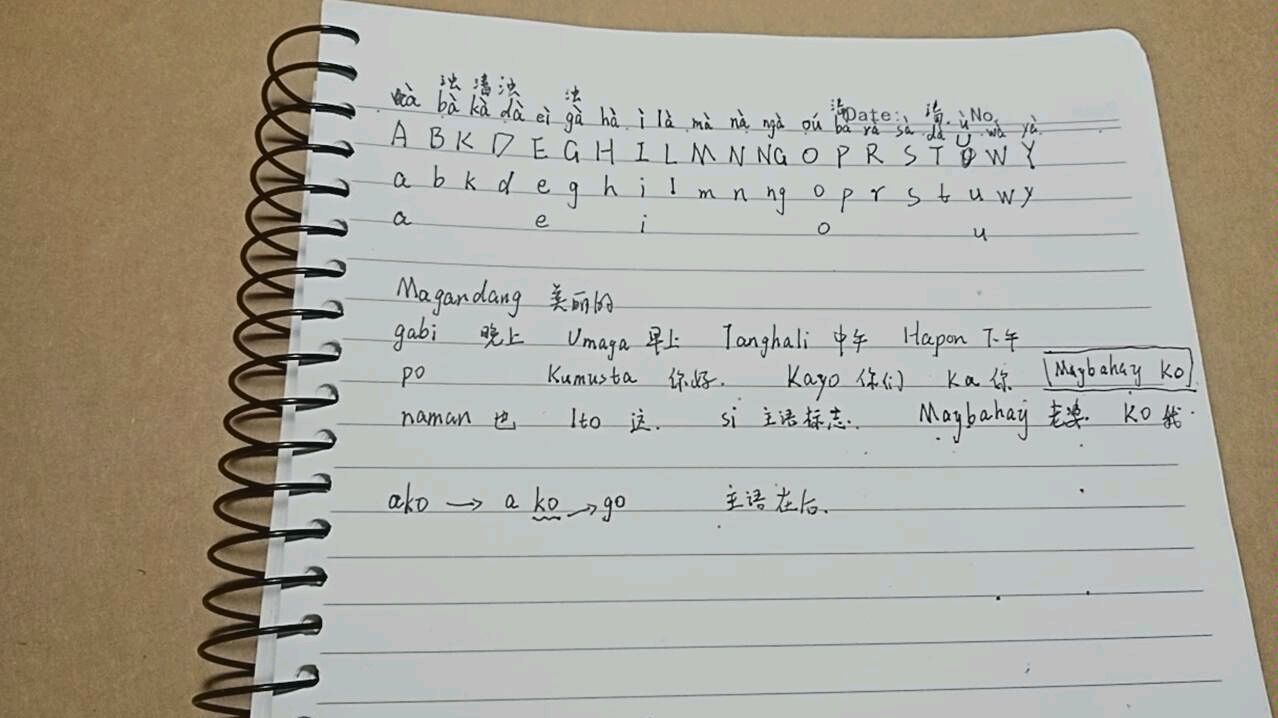 浊 清 浊 浊 清 清
à bà kà dà eì gà hà ì là mà nà ngà oú bà rà sà dà ù wà yà
Date: No.
A B K D E G H I L M N NG O P R S T U W Y
a b k d e g h i l m n ng o p r s t u w y
a e i o u
Magandang 美丽的
gabi 晚上 Umaga 早上 Tanghali 中午 Hapon 下午
po Kumusta 你好. Kayo 你们 Ka 你 [Maybahay Ko]
naman 也 Ito 这. si 主语标志. Maybahay 老婆. Ko 我.
ako → a ko → go 主语在后.